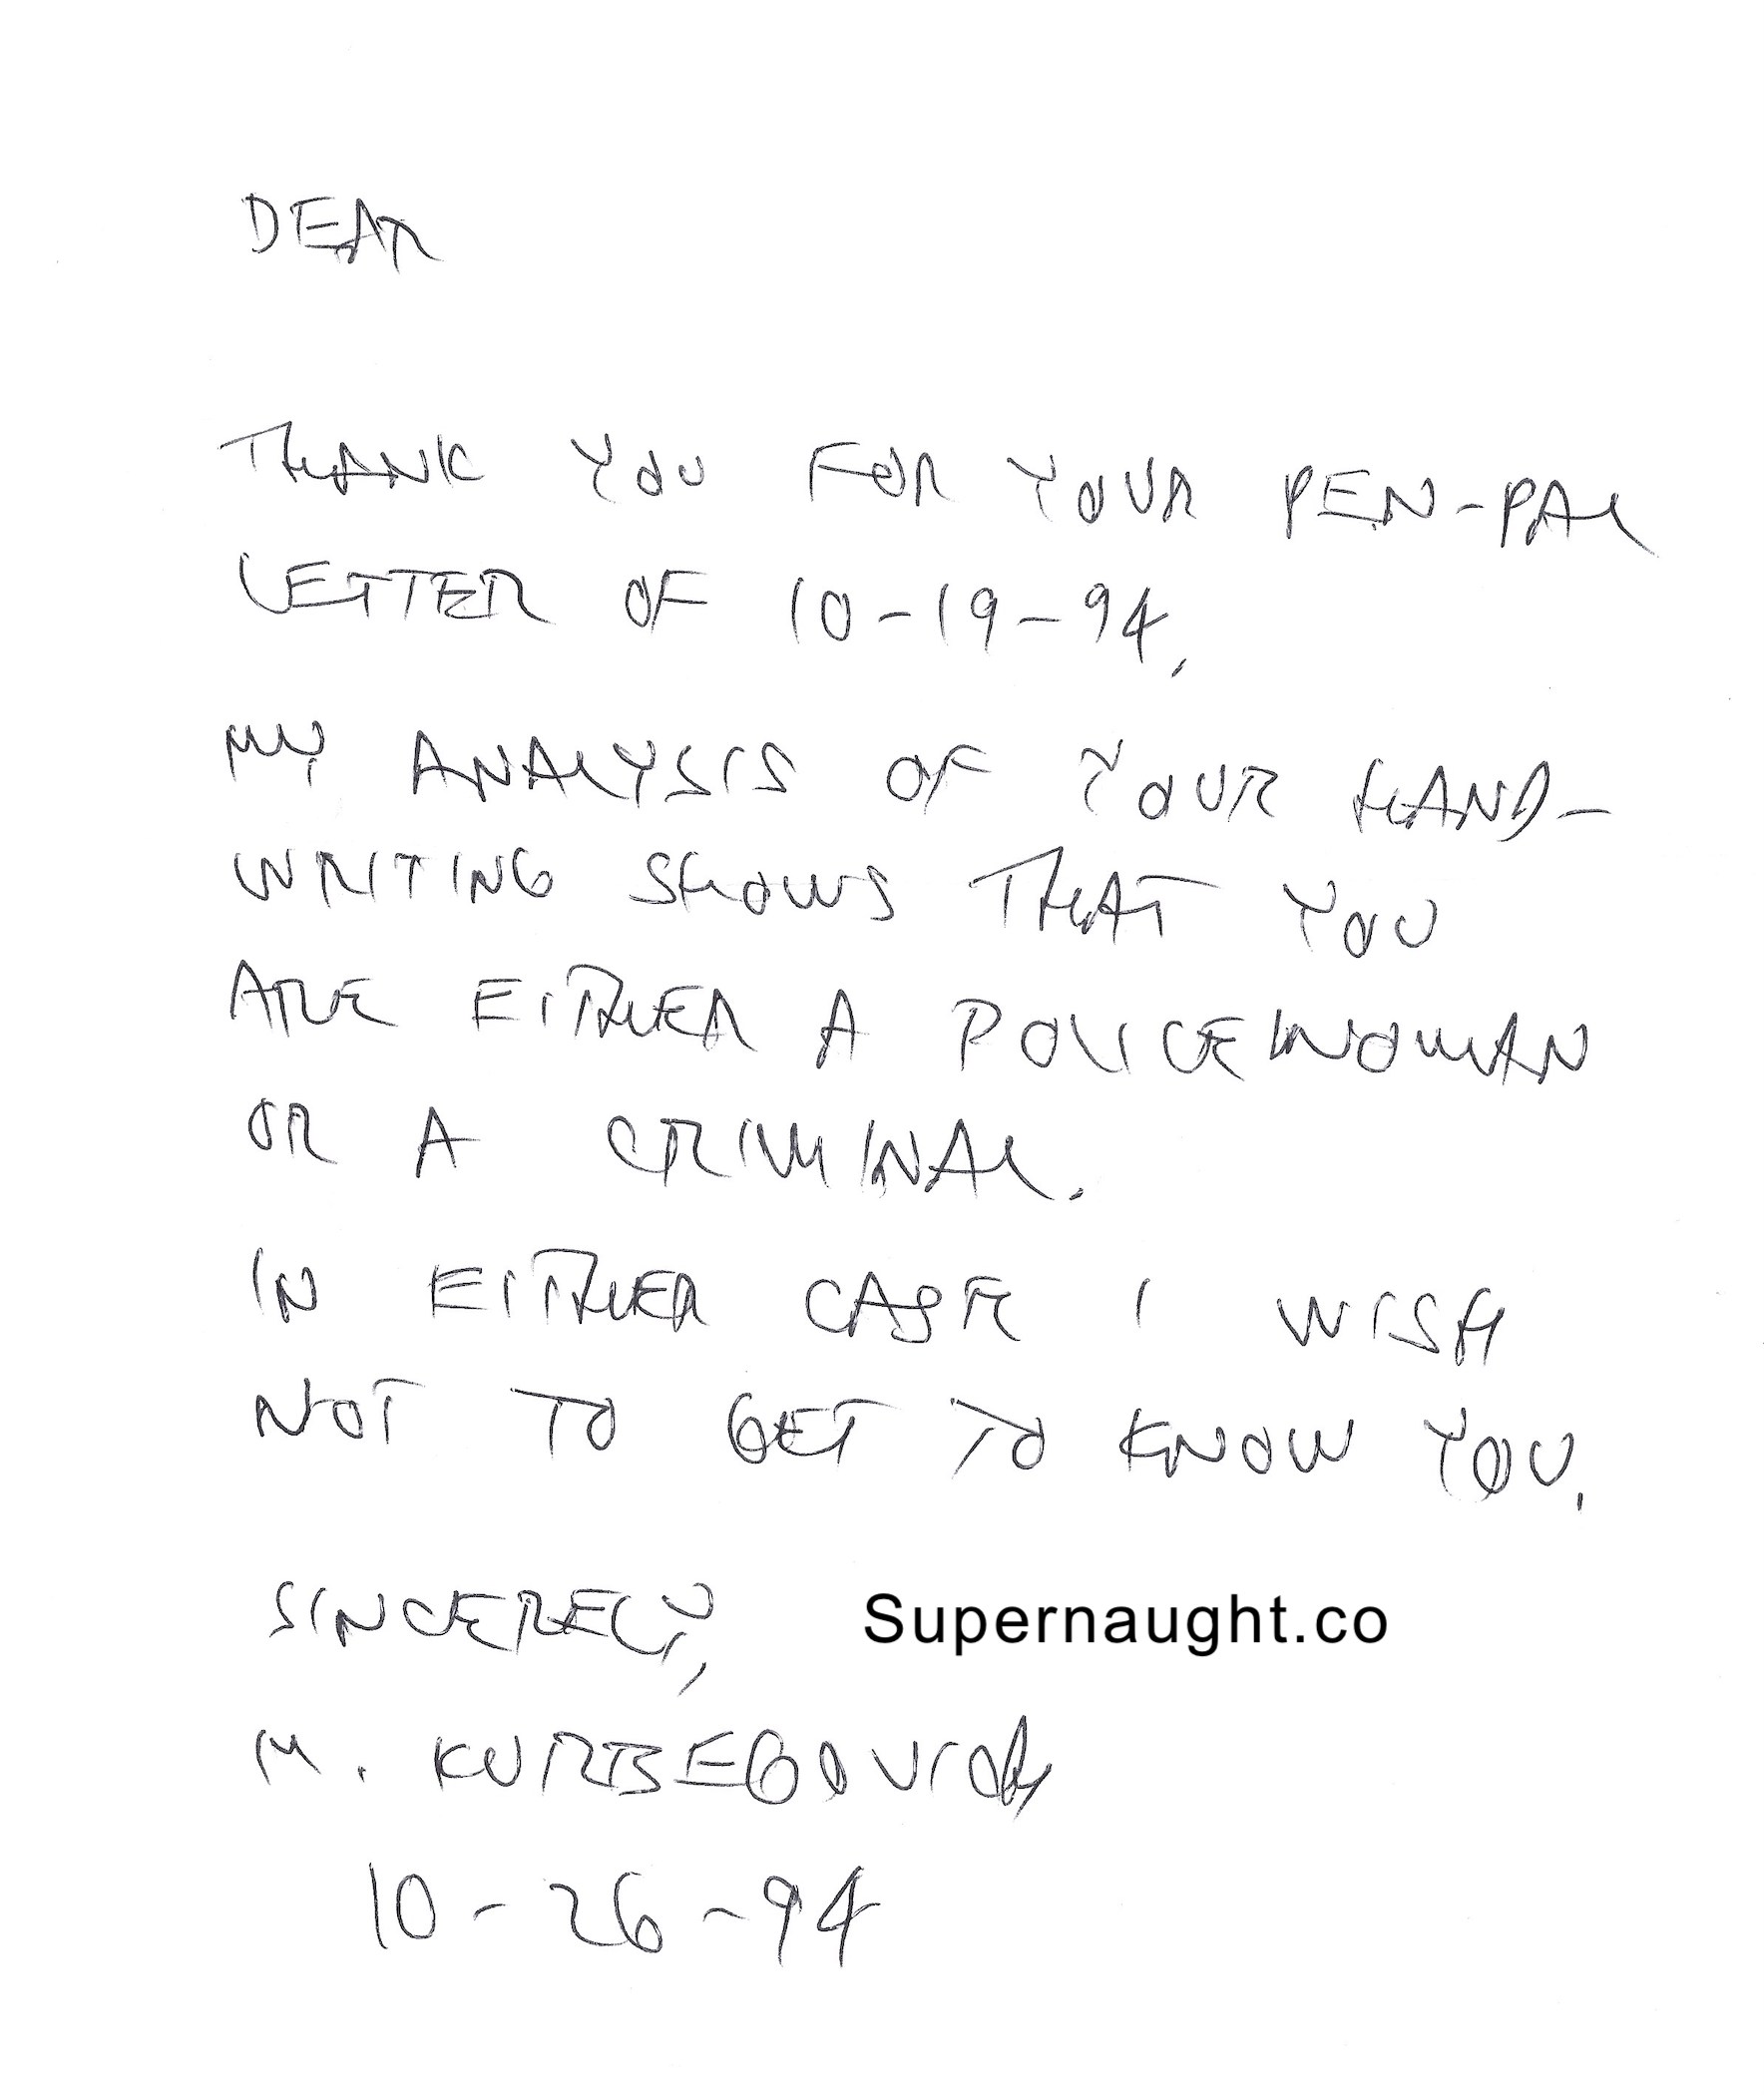 DEAR
THANK YOU FOR YOUR PEN-PAL
LETTER OF 10-19-94.
MY ANALYSIS OF YOUR HAND-
WRITING SHOWS THAT YOU
ARE EITHER A POLICEWOMAN
OR A CRIMINAL.
IN EITHER CASE I WISH
NOT TO GET TO KNOW YOU.
SINCERELY,
Supernaught.co
M. KURBEGOVICH
10-26-94